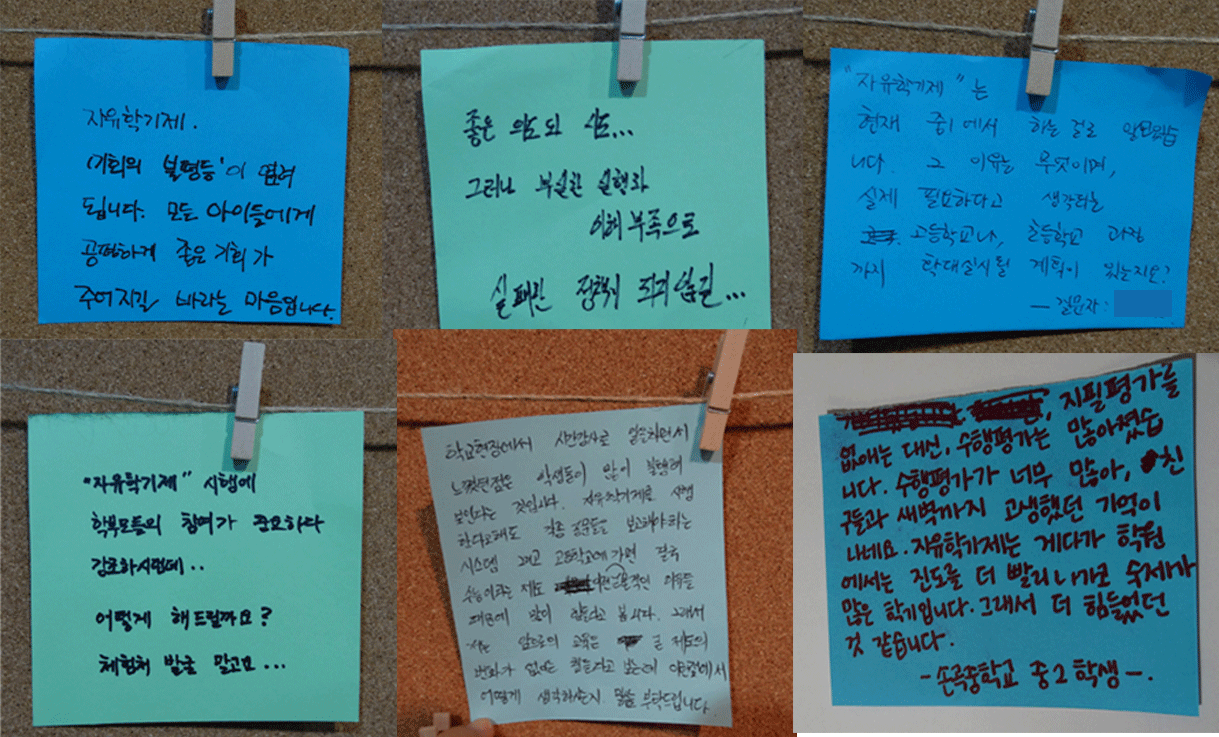 자유학기제.
'기회의 불평등'이 염려
됩니다. 모든 아이들에게
공평하게 좋은 기회가
주어지길 바라는 마음입니다.
좋은 의도의 시도...
그러나 부실한 실행과
이해 부족으로
실패한 정책이 되지 않길...
"자유학기제"는
현재 중1에서 하는 걸로 알고있습
니다. 그 이유는 무엇이며,
실제 필요하다고 생각되는
고등학교나, 초등학교 과정
까지 확대실시될 계획이 있는지요?
- 질문자:
"자유학기제" 시행에
학부모들의 참여가 중요하다
강조하시는데..
어떻게 해드릴까요?
체험처 발굴 말고요...
학교현장에서 시간강사로 일을하면서
느꼈던 점은 학생들이 많이 불행해
보인다는 것입니다. 자유학기제를 시행
한다고해도 각종 공문들을 보고해야하는
시스템 그리고 고등학교에 가면 결국
수능이라는 제도 이런 근본적인 이유들
때문에 많이 힘들다고 봅니다. 그래서
저는 앞으로의 교육은 큰 제도의
변화가 없이는 힘들다고 보는데
어떻게 생각하는지 말씀 부탁드립니다.
, 지필평가를
없애는 대신, 수행평가는 많아졌습
니다. 수행평가가 너무 많아, 친
구들과 새벽까지 고생했던 기억이
나네요. 자유학기제는 게다가 학원
에서는 진도를 더 빨리 나가고 숙제가
많은 학기입니다. 그래서 더 힘들었던
것 같습니다.
- 손곡중학교 중2학생 -.